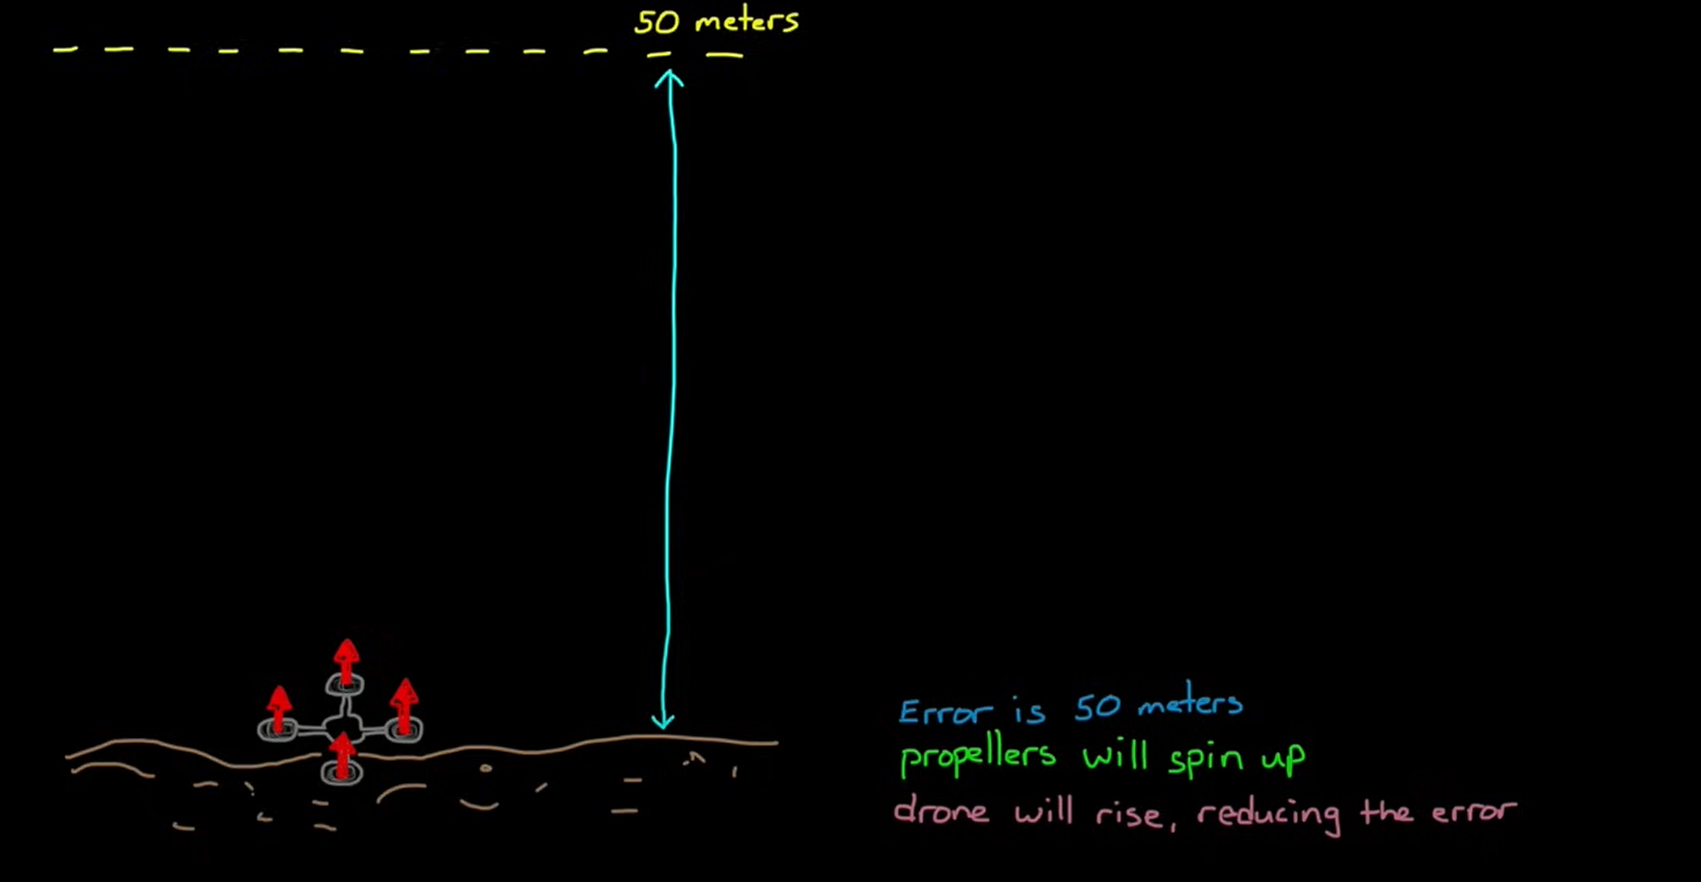 50 meters
Error is 50 meters
propellers will spin up
drone will rise, reducing the error